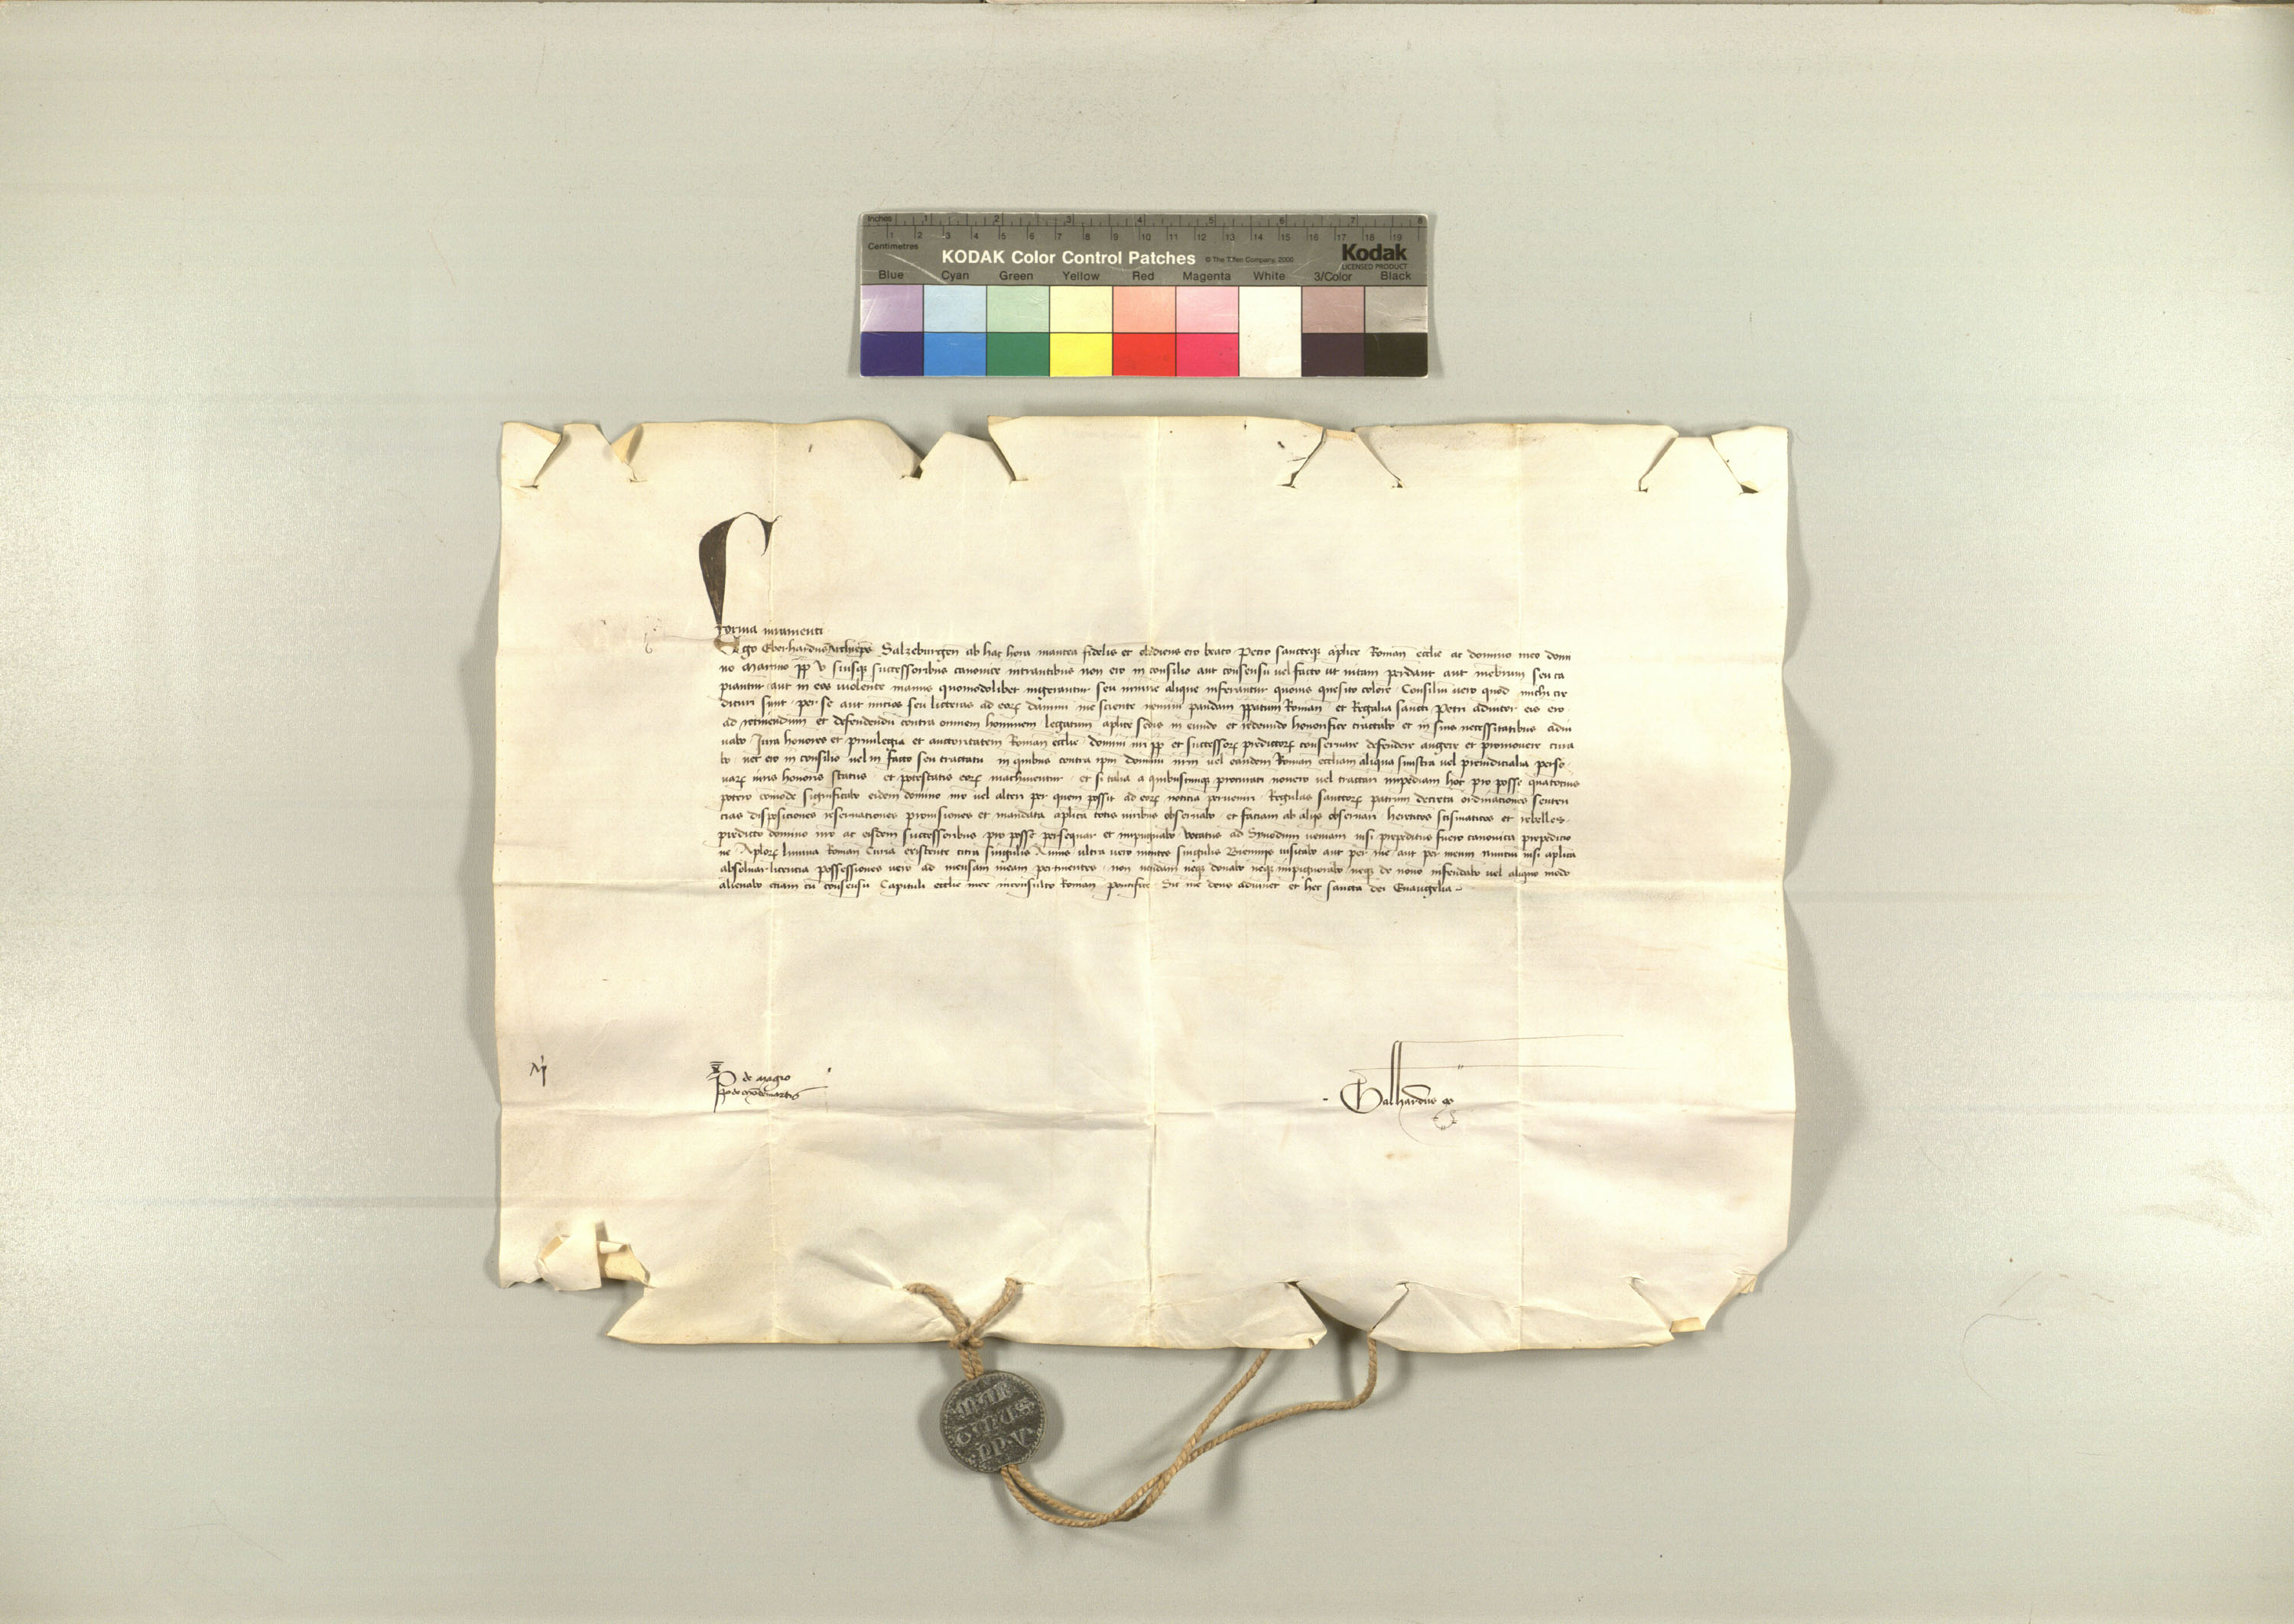 Inches 1 2 3 4 5 6 7 8
Centimetres 1 2 3 4 5 6 7 8 9 10 11 12 13 14 15 16 17 18 19
KODAK Color Control Patches © The Tiffen Company, 2000 Kodak
LICENSED PRODUCT
Blue Cyan Green Yellow Red Magenta White 3/Color Black
Forma iuramenti
Ego Eberhardus Archieps Salzeburgen ab hac hora inantea fidelis et obediens ero beato Petro sancteque aplice Roman ecclie ac domino meo domi
no Martino pp V suisque successoribus canonice intrantibus non ero in consilio aut consensu vel facto ut vitam perdant aut membrum seu ca
piantur aut in eos violente manus quomodolibet ingerantur seu iniurie alique inferantur quovis quesito colore Consilium vero quod michi cre
dituri sunt per se aut nuncios seu litteras ad eorum damnum me sciente nemini pandam ppatum Roman et Regalia sancti Petri adiutor eis ero
ad retinendum et defendendum contra omnem hominem legatum aplice sedis in eundo et redeundo honorifice tractabo et in suis necessitatibus adiu
vabo Iura honores et privilegia et auctoritatem Roman ecclie domini nri pp et successorum predictorum conservare defendere augere et promovere cura
bo nec ero in consilio vel in facto seu tractatu in quibus contra ipm dominum nrm vel eandem Roman eccliam aliqua sinistra vel preiudicialia perso
narum iuris honoris status et potestatis eorum machinentur et si talia a quibuscunque procurari novero vel tractari impediam hoc pro posse quantocius
potero comode significabo eidem domino nro vel alteri per quem possit ad eorum noticiam pervenire Regulas sanctorum patrum decreta ordinationes senten
cias dispositiones reservationes provisiones et mandata aplica totis viribus observabo et faciam ab aliis observari hereticos scismaticos et rebelles
predicto domino nro ac eisdem successoribus pro posse persequar et impugnabo vocatus ad Synodum veniam nisi prepeditus fuero canonica prepedicio
ne Aplorum limina Roman Curia existente citra singulis Annis ultra vero montes singulis Bienniis visitabo aut per me aut per meum nuncium nisi aplica
absolvar licencia possessiones vero ad mensam meam pertinentes non vendam neque donabo neque impignorabo neque de novo infeudabo vel aliquo modo
alienabo etiam cum consensu Capituli ecclie mee inconsulto Roman pontifice Sic me deus adiuvet et hec sancta dei Evangelia
P de magio
Galhardus
MAR
TINUS
PP V